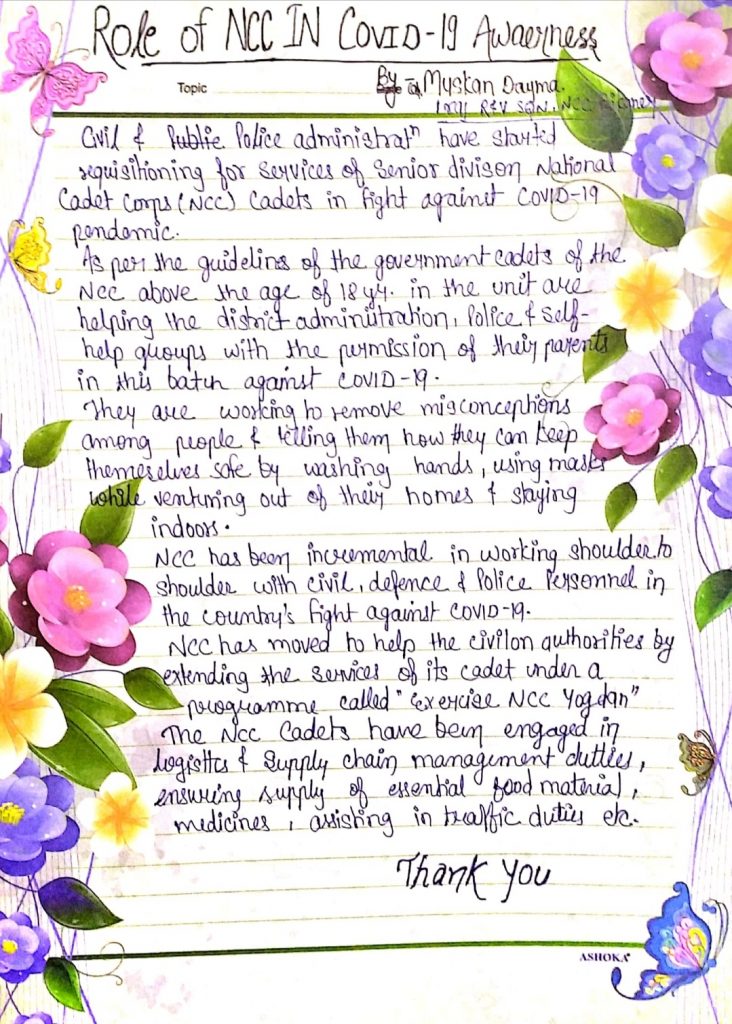 Role of NCC IN COVID-19 Awaerness
Topic
By Myskan Dayma
1 Raj R&V SQN, NCC Bikaner
Civil & Public Police administratn have started
requisitioning for services of Senior divison National
Cadet Corps (NCC) Cadets in fight against COVID-19
pendemic.
As per the guidelins of the government cadets of the
NCC above the age of 18 yr. in the unit are
helping the district administration, Police & self-
help groups with the permission of their parents
in this battle against COVID-19.
They are working to remove misconceptions
among people & telling them how they can keep
themeselves safe by washing hands, using masks
while venturing out of their homes & staying
indoors.
NCC has been incremental in working shoulder to
shoulder with civil, defence & Police Personnel in
the country's fight against COVID-19.
NCC has moved to help the civilon authorities by
extending the services of its cadet under a
programme called "Exercise NCC Yogdan"
The NCC Cadets have been engaged in
logistics & supply chain management dutties,
ensuring supply of essential food material,
medicines, assisting in traffic duties etc.
Thank you
ASHOKA